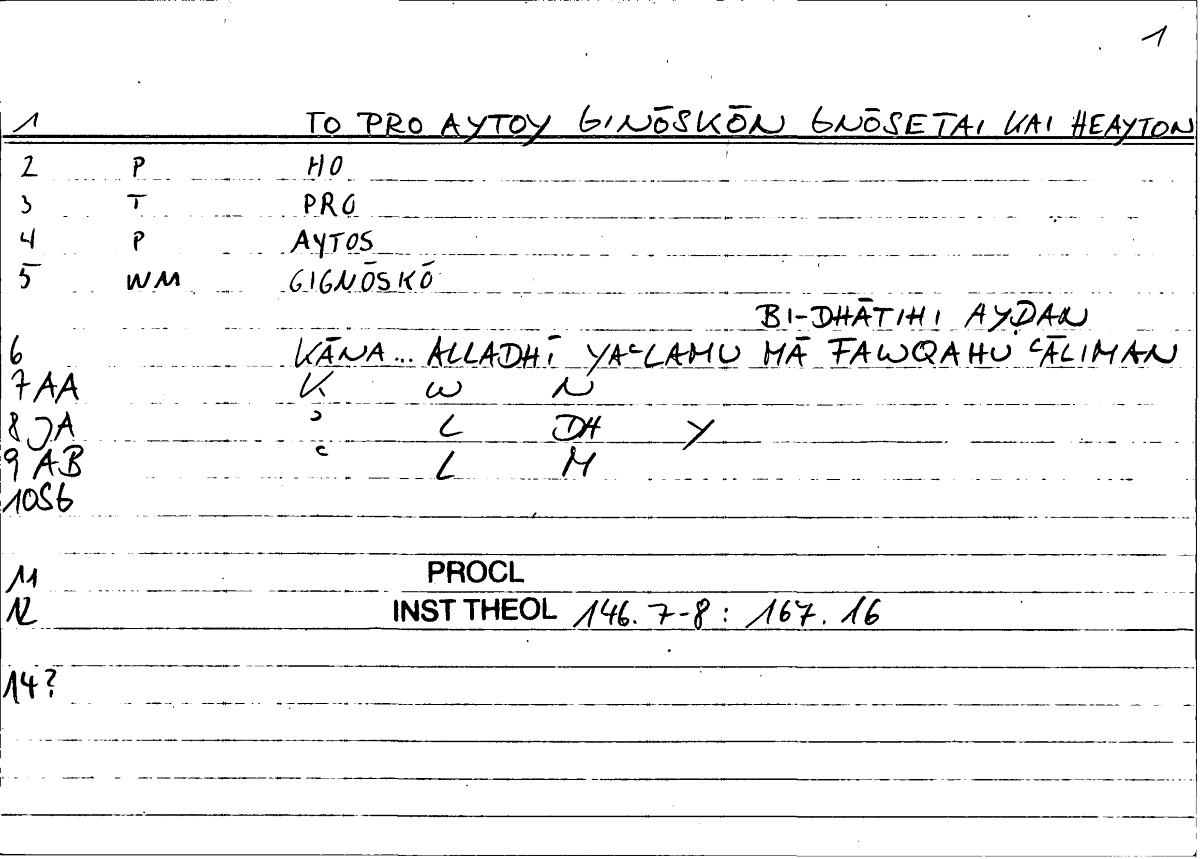 1
1 TO PRO AYTOY GINŌSKŌN GNŌSETAI KAI HEAYTON
2 P HO
3 T PRO
4 P AYTOS
5 WM GIGNŌSKŌ
BI-DHĀTIHI AYḌAN
6 KĀNA... ALLADHĪ YAʿLAMU MĀ FAWQAHU ʿĀLIMAN
7 AA K W N
8 JA ʾ L DH Y
9 AB ʿ L M
10 SG
11 PROCL
12 INST THEOL 146.7-8: 167.16
14?